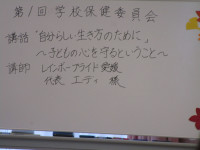 第1回学校保健委員会
講話「自分らしい生き方のために」
～子どもの心を守るということ～
講師 レインボープライド愛媛
代表 エディ 様